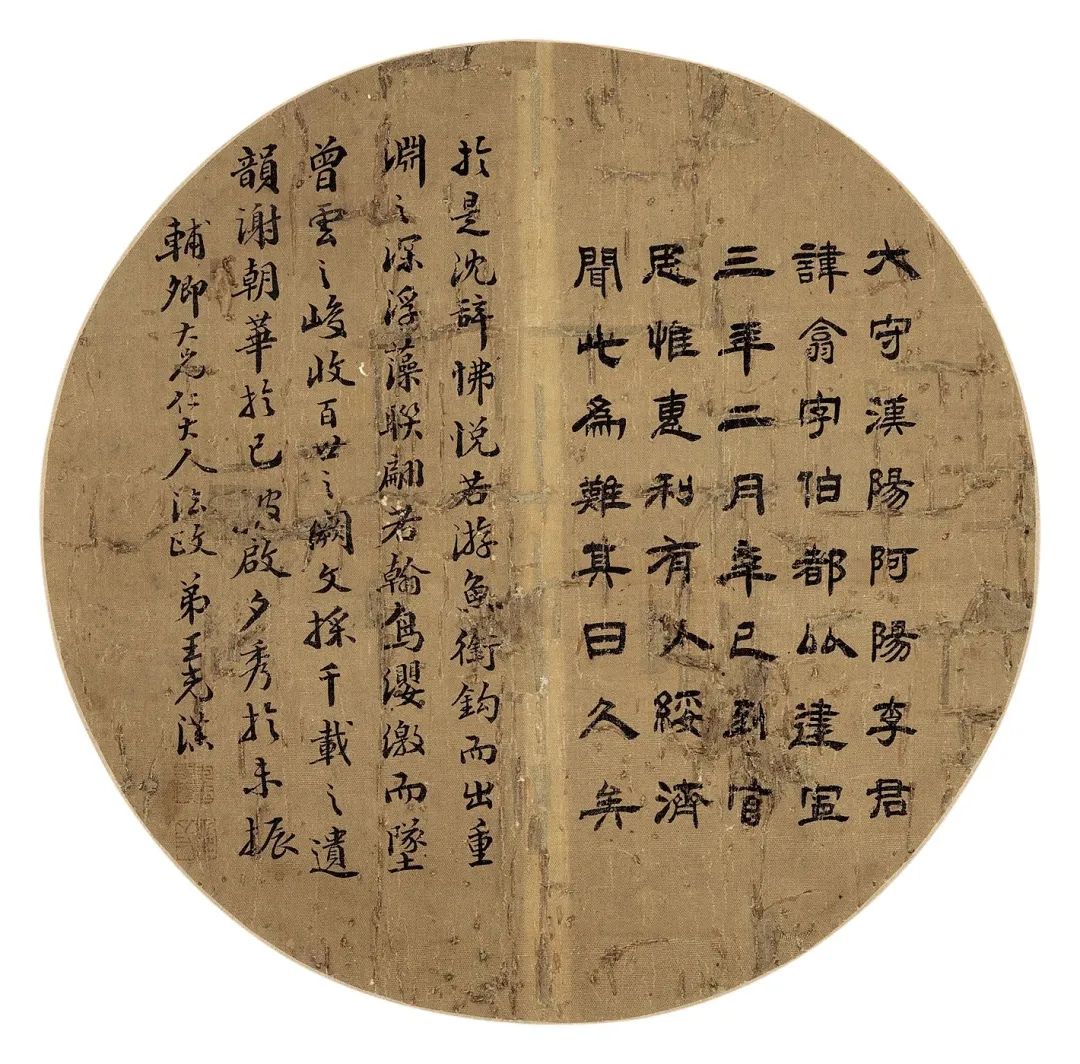 大守漢陽阿陽李君
諱翕字伯都以建寍
三年二月辛巳到官
思惟惠利有人綏濟
聞此為難其日久矣
於是沈辭怫悅若游魚銜鈎而出重
淵之深浮藻聯翩若翰鳥纓繳而墜
曾雲之峻收百世之闕文採千載之遺
韻謝朝華於已披啟夕秀於未振
輔卿大兄仁大人法政 弟王堯漢